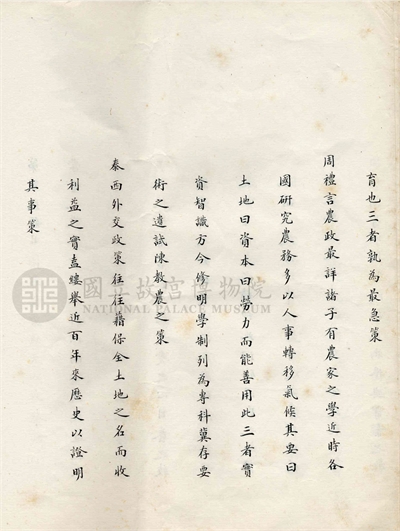 育也三者孰為最急策
周禮言農政最詳諸子有農家之學近時各
國研究農務多以人事轉移氣候其要曰
土地曰資本曰勞力而能善用此三者實
資智識方今修明學制列為專科冀存要
術之遺試陳教農之策
泰西外交政策往往藉保全土地之名而收
利益之實盍縷舉近百年來歷史以證明
其事策
國立故宮博物院
NATIONAL PALACE MUSEUM